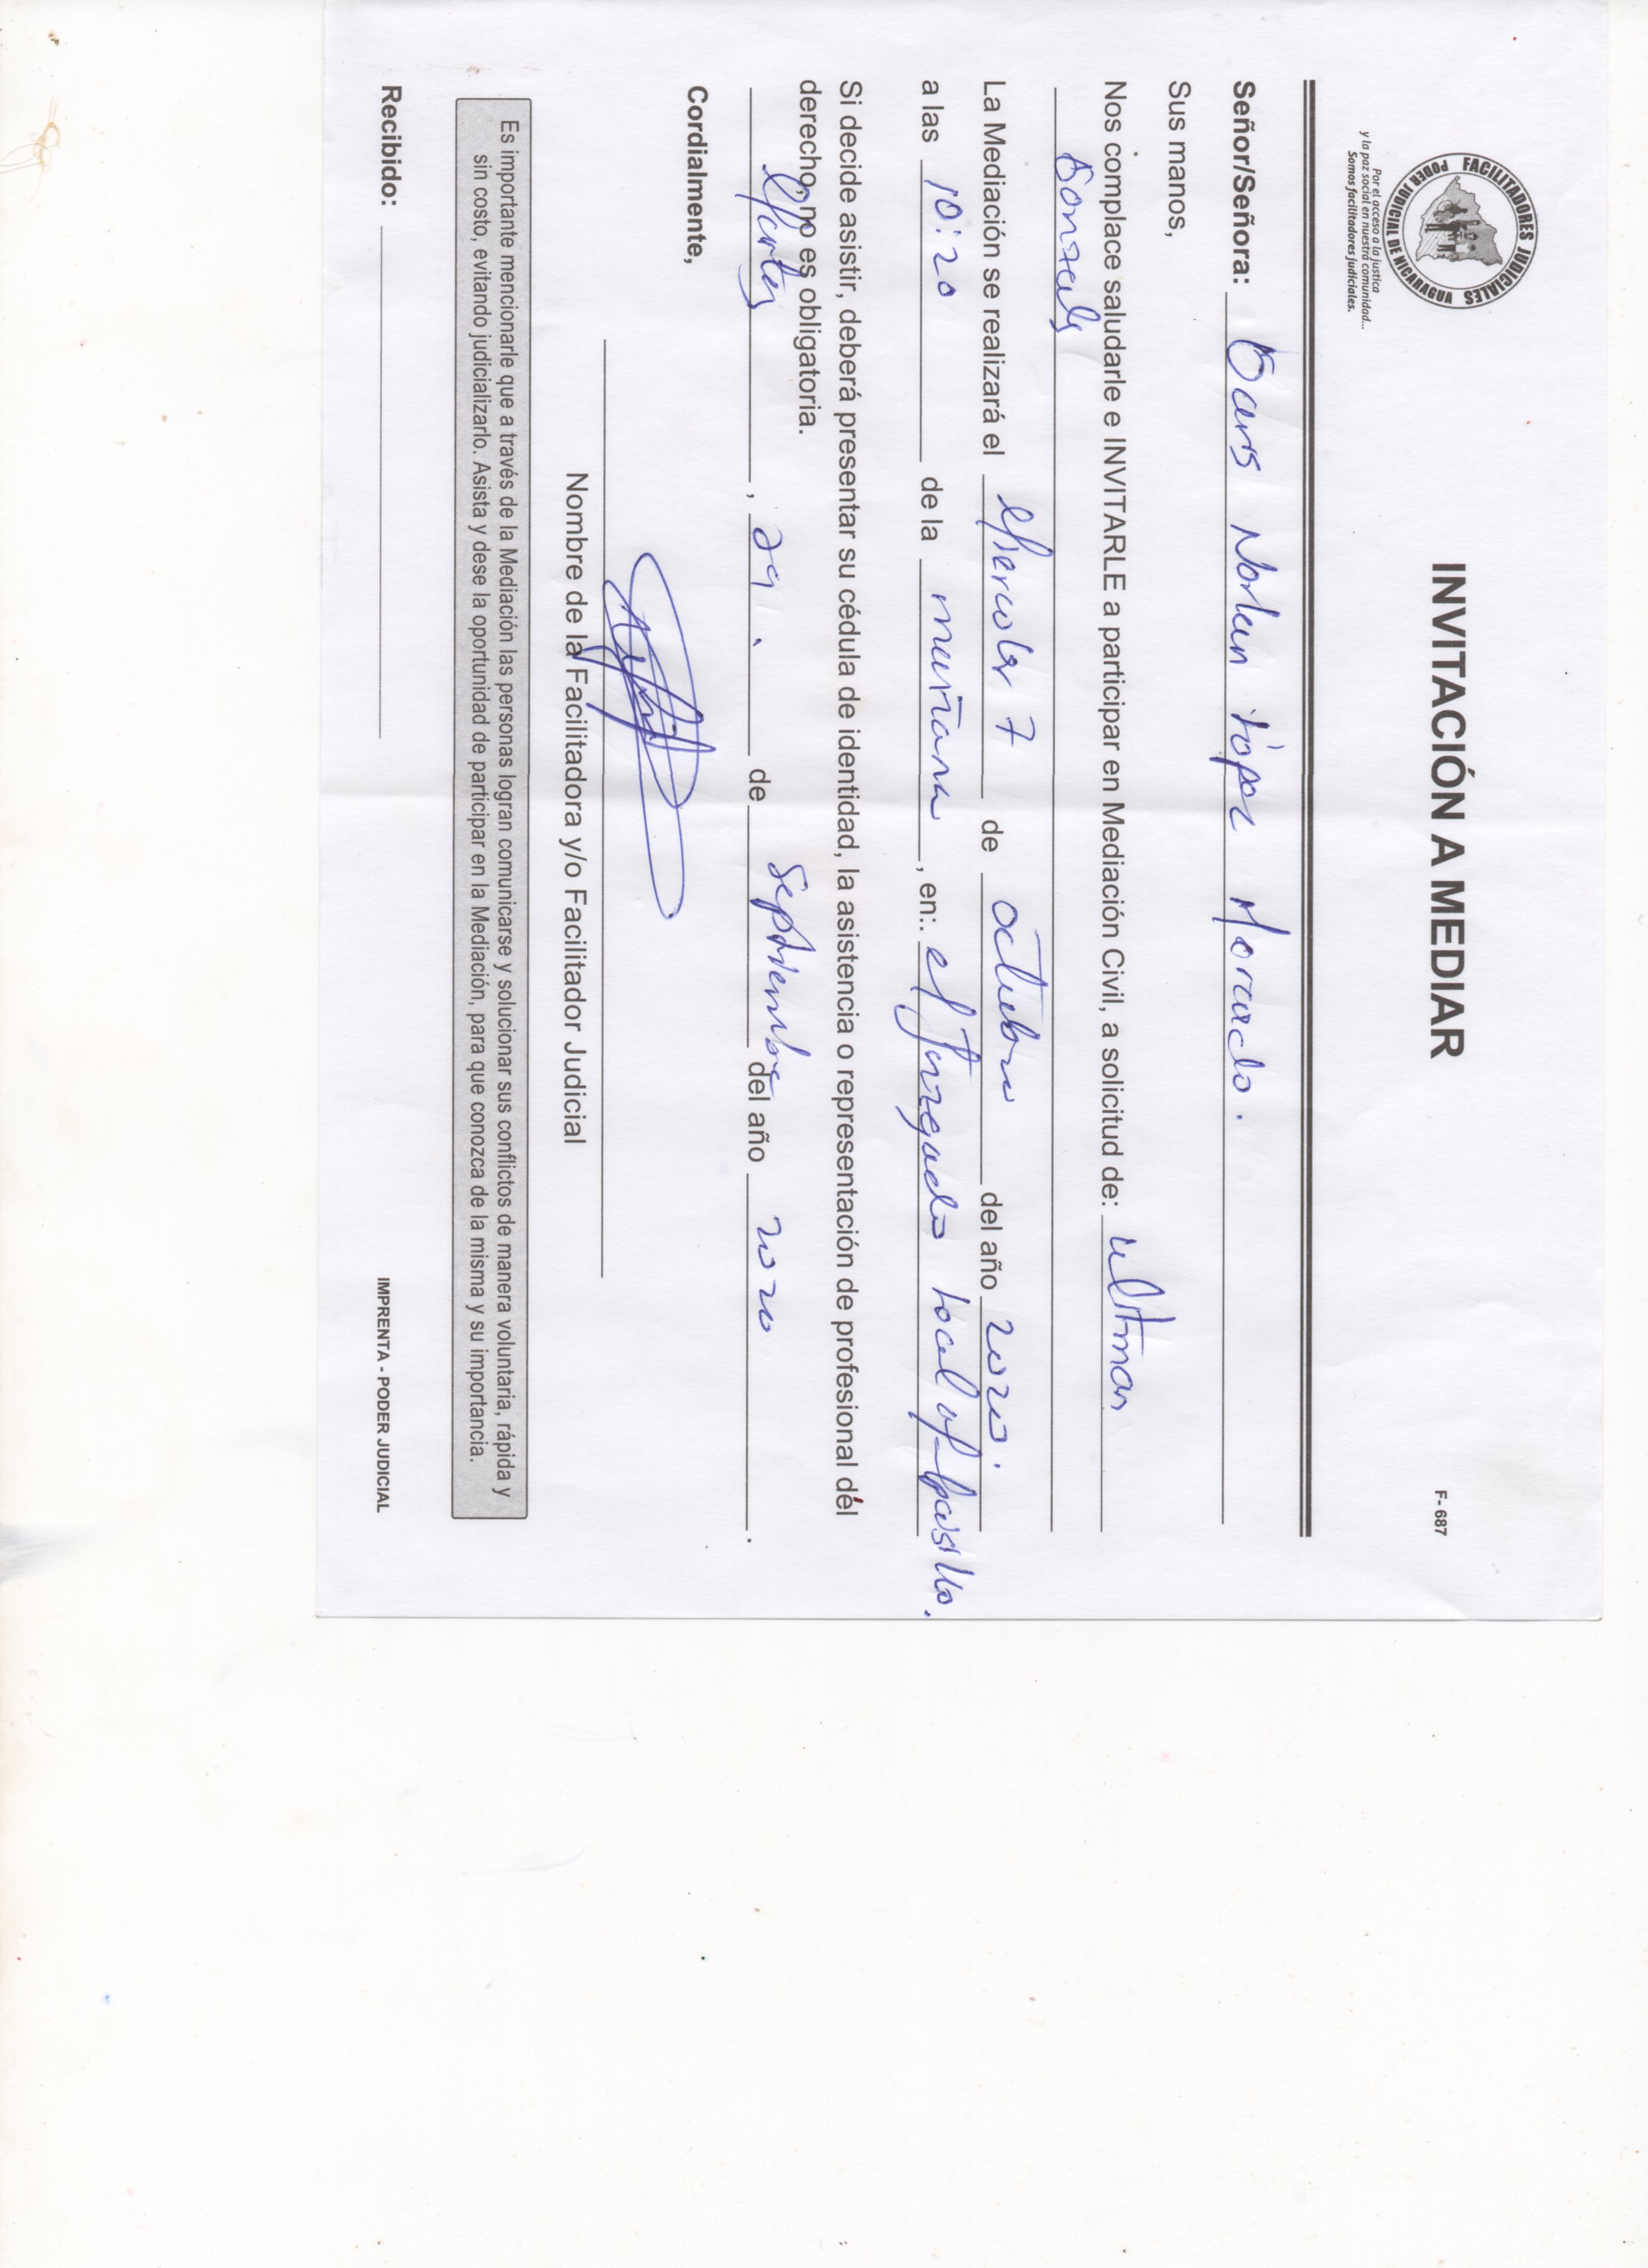 INVITACIÓN A MEDIAR
F- 687
FACILITADORES JUDICIALES
PODER JUDICIAL DE NICARAGUA
Por el acceso a la justica
y la paz social en nuestra comunidad...
Somos facilitadores judiciales.
Señor/Señora: Norlan López Mercado.
Sus manos,
Nos complace saludarle e INVITARLE a participar en Mediación Civil, a solicitud de:
La Mediación se realizará el Miercoles 7 de octubre del año 2020.
a las 10:20 de la mañana, en: el Juzgado Local
Si decide asistir, deberá presentar su cédula de identidad, la asistencia o representación de profesional del
derecho, no es obligatoria.
Martes, 29. de Septiembre del año 2020.
Cordialmente,
Nombre de la Facilitadora y/o Facilitador Judicial
Es importante mencionarle que a través de la Mediación las personas logran comunicarse y solucionar sus conflictos de manera voluntaria, rápida y
sin costo, evitando judicializarlo. Asista y dese la oportunidad de participar en la Mediación, para que conozca de la misma y su importancia.
Recibido:
IMPRENTA - PODER JUDICIAL